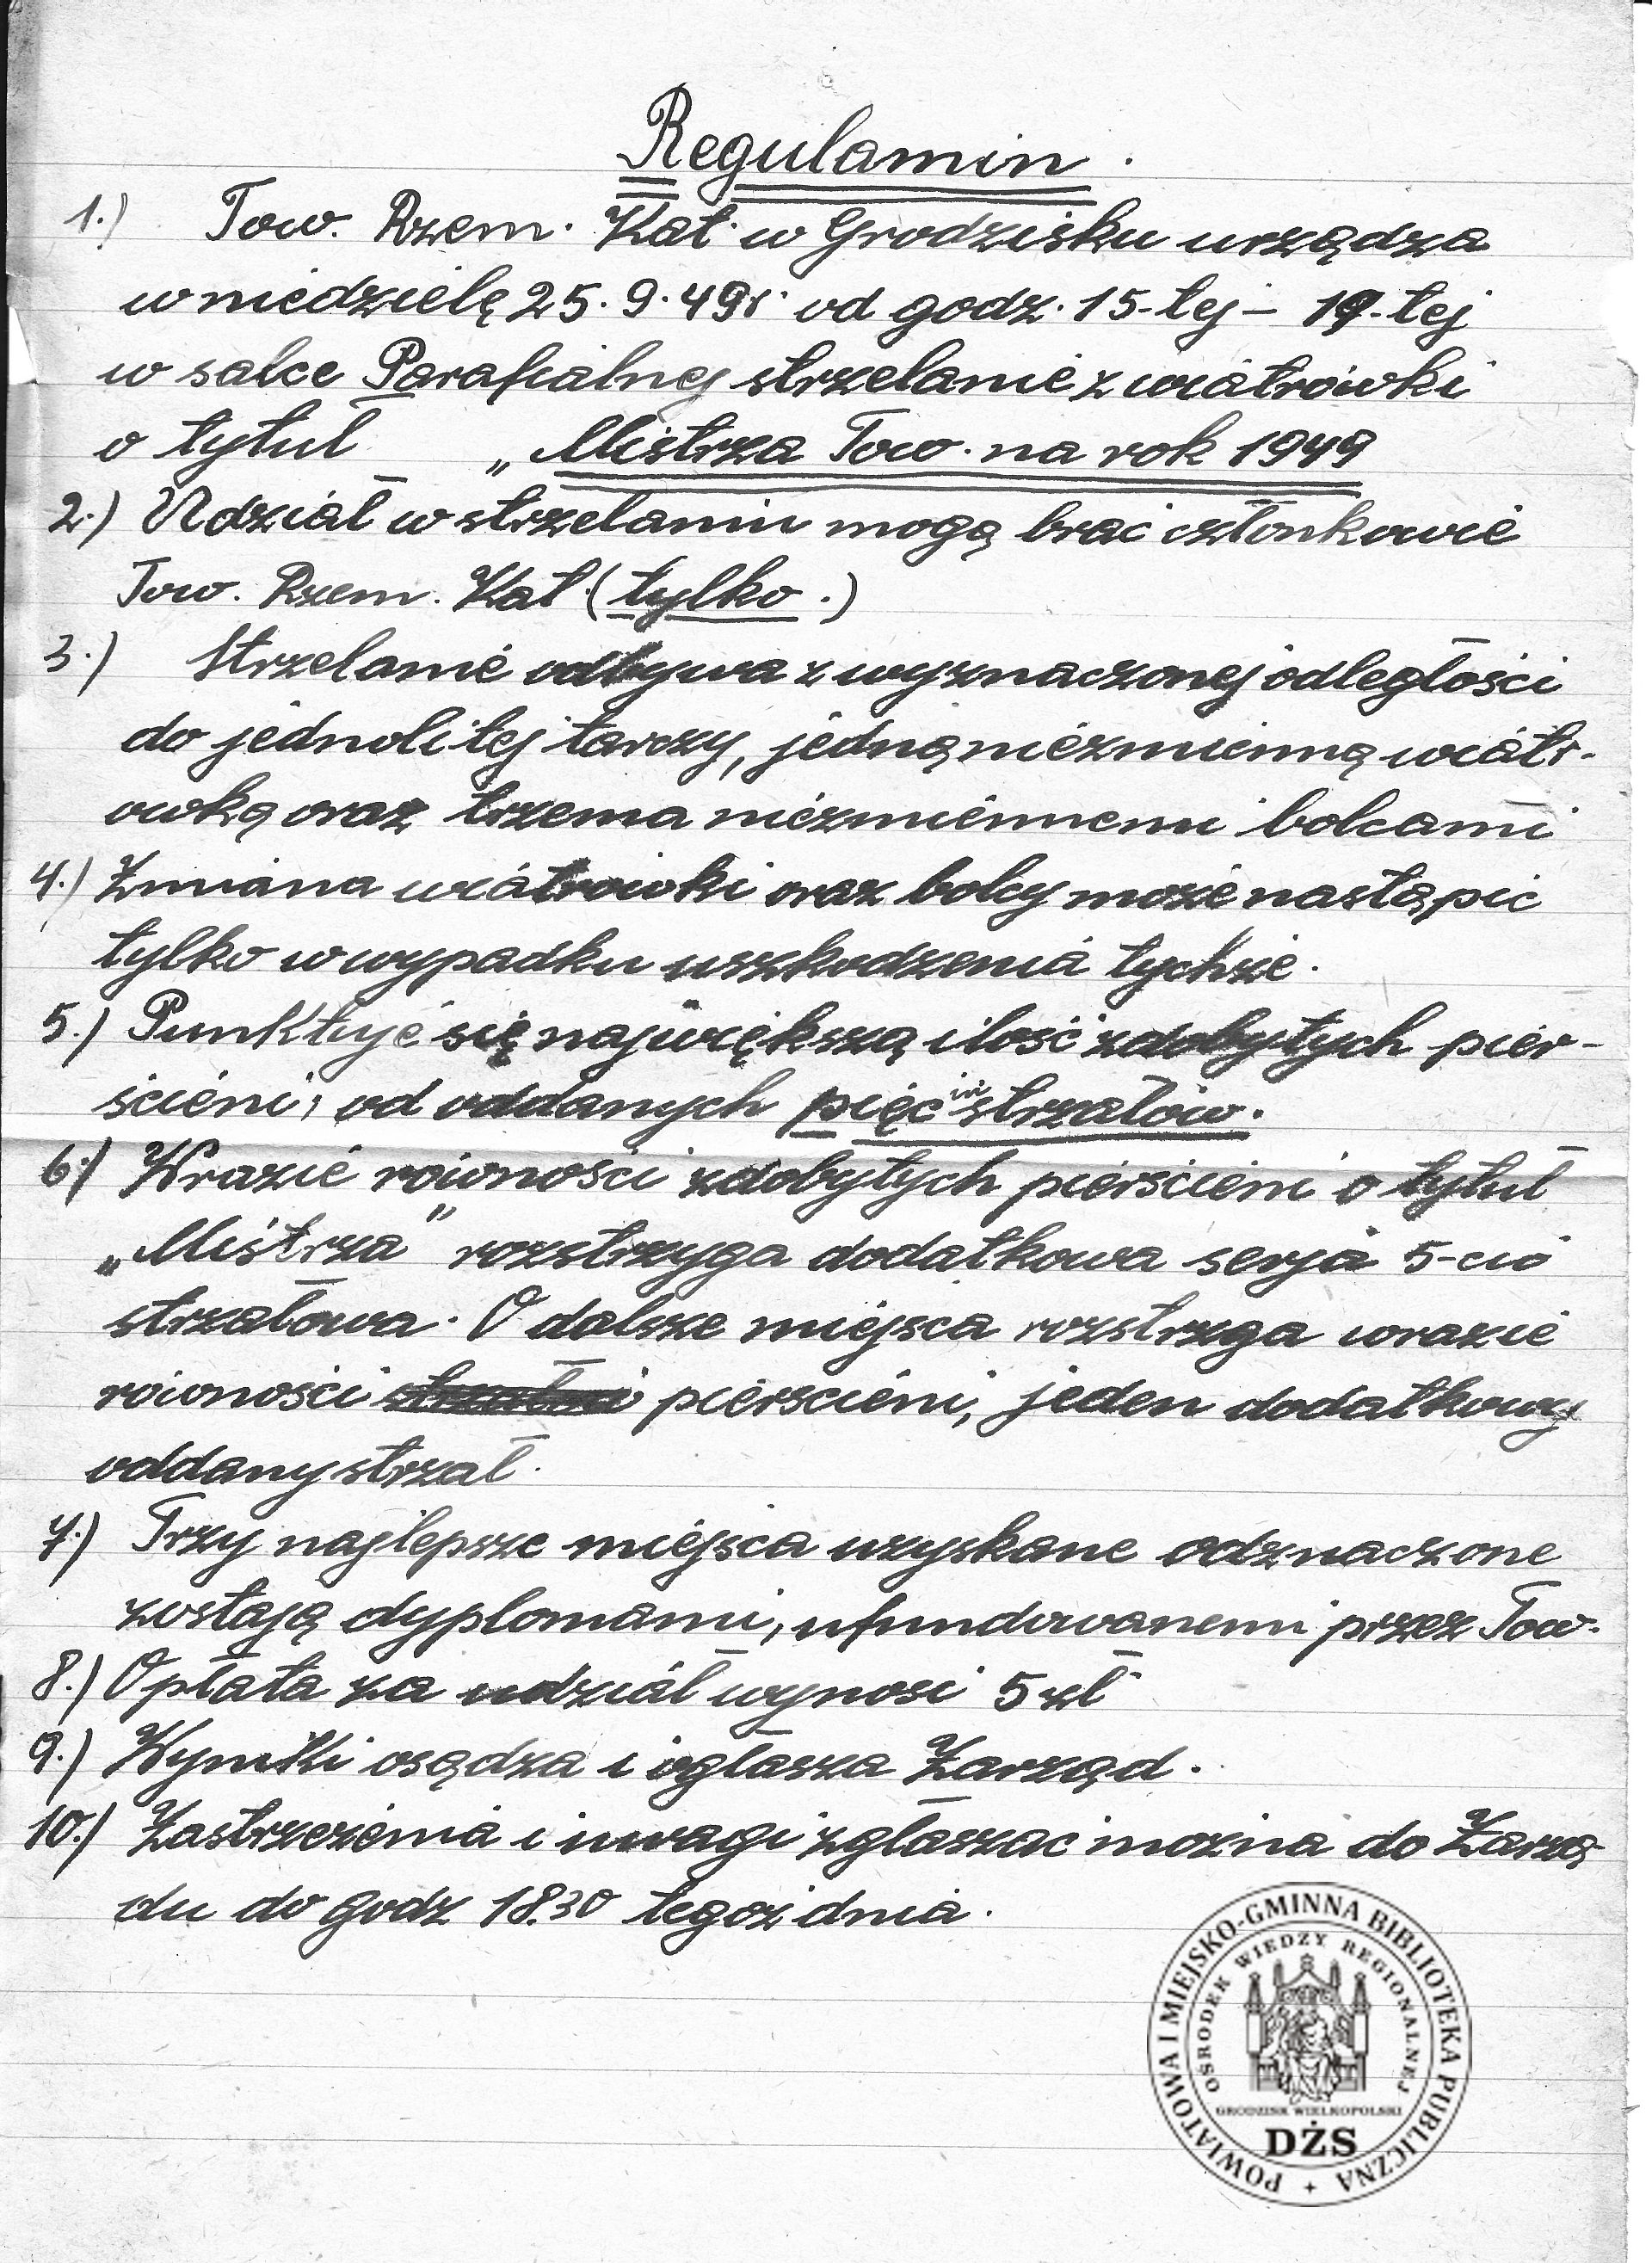 Regulamin.
1.) Tow. Rzem. Kat. w Grodzisku urządza
w niedzielę 25.9.49r. od godz. 15-tej – 19-tej
w salce Parafialnej strzelanie z wiatrówki
o tytuł „Mistrza Tow. na rok 1949
2.) Udział w strzelaniu mogą brać członkowie
Tow. Rzem. Kat. (tylko.)
3.) Strzelanie odbywa z wyznaczonej odległości
do jednolitej tarczy, jedną niezmienną wiatr-
ówką oraz trzema niezmiennemi bolcami
4.) Zmiana wiatrówki oraz bolcy może nastąpić
tylko w wypadku uszkodzenia tychże.
5.) Punktuje się największą ilość zdobytych pier-
ścieni, od oddanych pięciu strzałów.
6.) Wrazie równości zdobytych pierścieni o tytuł
„Mistrza” rozstrzyga dodatkowa serja 5-cio
strzałowa. O dalsze miejsca rozstrzga wrazie
równości pierścieni, jeden dodatkowy
oddany strzał.
7.) Trzy najlepsze miejsca uzyskane odznaczone
zostają dyplomami, ufundowanemi przez Tow.
8.) Opłata za udział wynosi 5 zł
9.) Wyniki osądza i ogłasza Zarząd.
10.) Zastrzeżenia i uwagi zgłaszać można do Zarzą
du do godz 18.30 tegoż dnia.
POWIATOWA I MIEJSKO-GMINNA BIBLIOTEKA PUBLICZNA
OŚRODEK WIEDZY REGIONALNEJ
GRODZISK WIELKOPOLSKI
DŻS